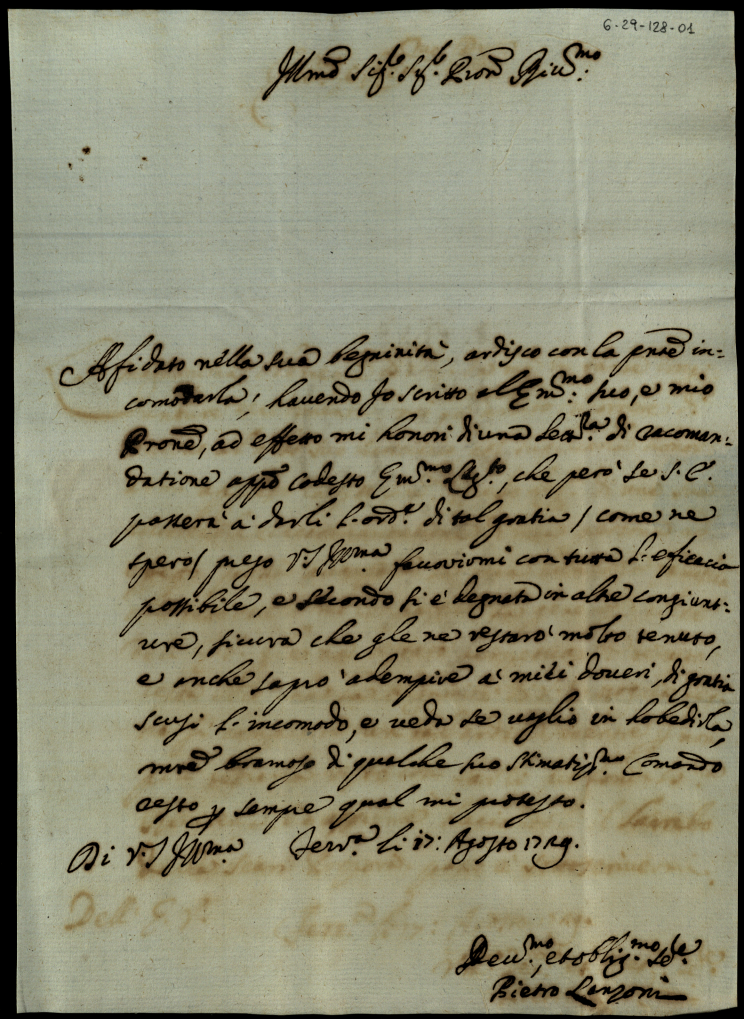 6-29-128-01
Illmo Sigr. Sigr. Prone Rivmo:
Affidato nella sua begninità, ardisco con la pnte in=
comodarla; havendo Io scritto all Emmo: suo, e mio
Prone, ad effetto mi honori di una Lettra di racoman=
datione appo Codesto Emmo: Legto, che però se S. E.
passerà à darli l. ordе. di tal gratia / come ne
spero / prego V.S Illma favorirmi con tutta l. eficacia
possibile, e secondo si è degnata in altre congiunt=
ure, sicura che gle ne restarò molto tenuto,
e anche saprò adempire à miei doveri, di gratia
scusi l. incomodo, e veda se vaglio in hobedirla,
mre bramoso di qualche suo stimatissmo Comando
resto p sempre qual mi protesto.
Di V.S Illma Ferra li 17: Agosto 1729.
Devmo:, et oblig:mo Se.
Pietro Lanzoni